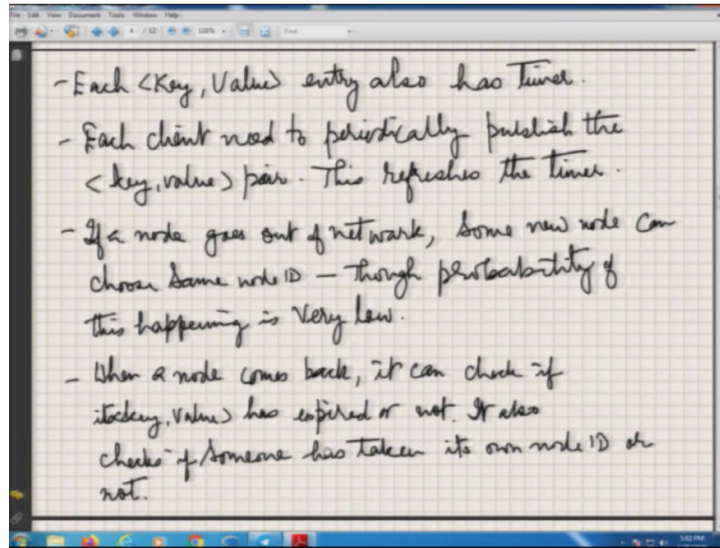 File Edit View Document Tools Window Help
4 / 12 118% Find
- Each <Key, Value> entry also has Timer.
- Each client need to periodically publish the
<key, value> pair. This refreshes the timer.
- If a node goes out of network, some new node can
choose same node ID - Though probability of
this happening is very low.
- When a node comes back, it can check if
its<key, value> has expired or not. It also
checks if someone has taken its own node ID or
not.
5:42 PM